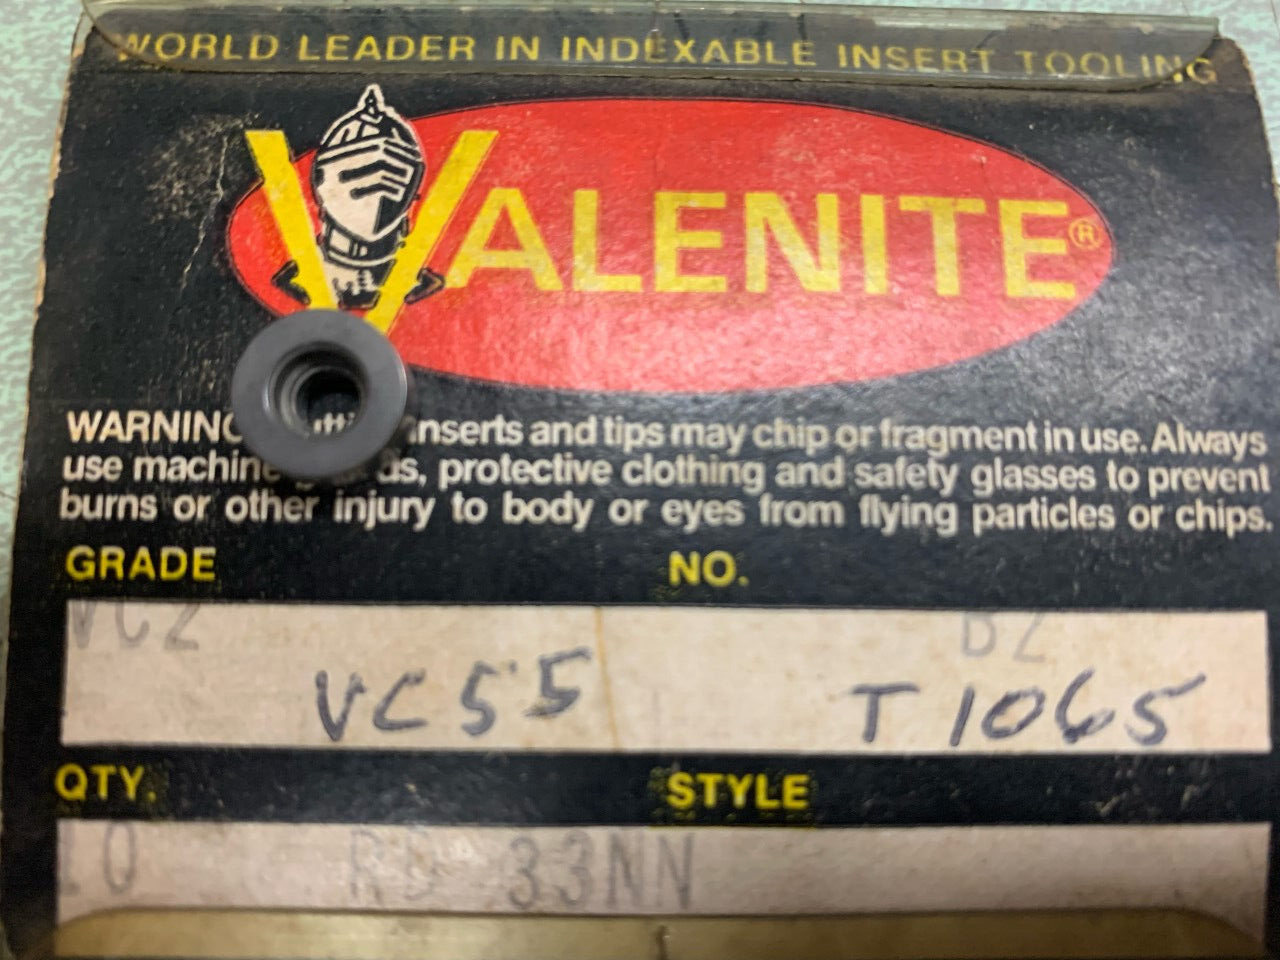 WORLD LEADER IN INDEXABLE INSERT TOOLING
VALENITE®
WARNING inserts and tips may chip or fragment in use. Always
use machine protective clothing and safety glasses to prevent
burns or other injury to body or eyes from flying particles or chips.
GRADE NO.
VC2
VC55 T1065
QTY. STYLE
10 33NN